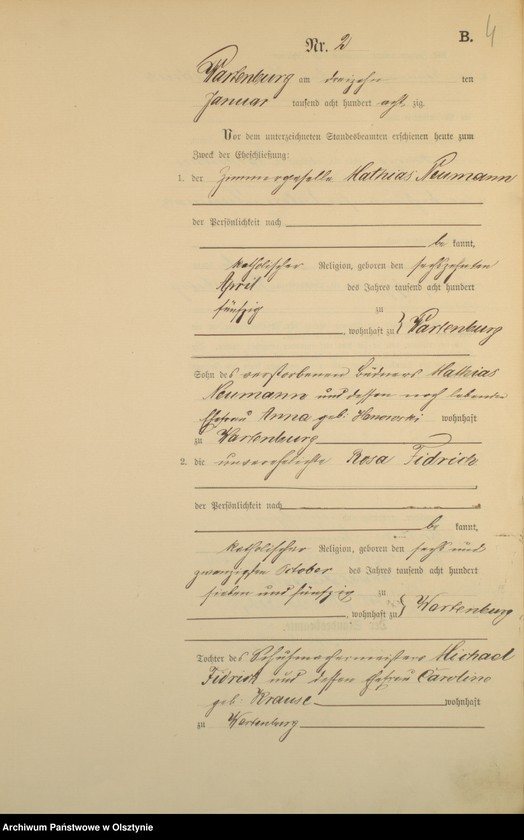 B. 4
Nr. 2
Wartenburg am dreizehn ten
Januar tausend acht hundert acht zig.
Vor dem unterzeichneten Standesbeamten erschienen heute zum
Zweck der Eheschließung:
1. der Zimmergeselle Mathias Neumann
der Persönlichkeit nach
be kannt,
katholischer Religion, geboren den sechszehnten
April des Jahres tausend acht hundert
fünfzig zu
, wohnhaft zu } Wartenburg
Sohn des verstorbenen Büdners Mathias
Neumann und dessen noch lebenden
Ehefrau Anna geb. wohnhaft
zu Wartenburg
2. die unverehelichte Rosa Fidrich
der Persönlichkeit nach
be kannt,
katholischer Religion, geboren den sechs und
zwanzigsten October des Jahres tausend acht hundert
sieben und fünfzig zu
, wohnhaft zu } Wartenburg
Tochter des Schuhmachermeisters Michael
Fidrich und dessen Ehefrau Caroline
geb. Krause wohnhaft
zu Wartenburg
Archiwum Państwowe w Olsztynie